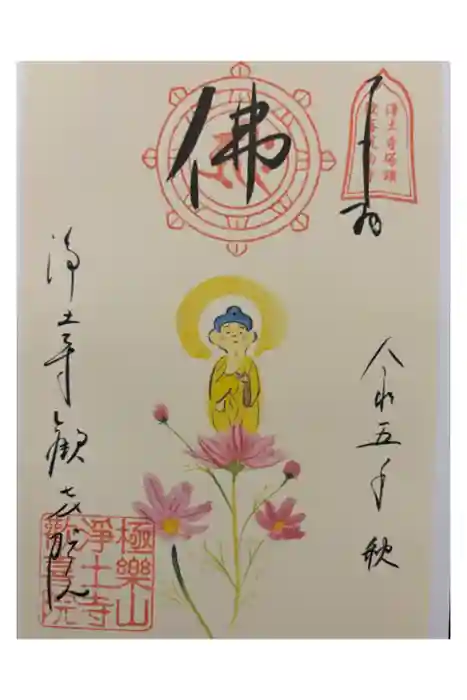 浄土寺塔頭
令和五年秋
佛
浄土寺歓喜院
極樂山
淨土寺
歡喜院